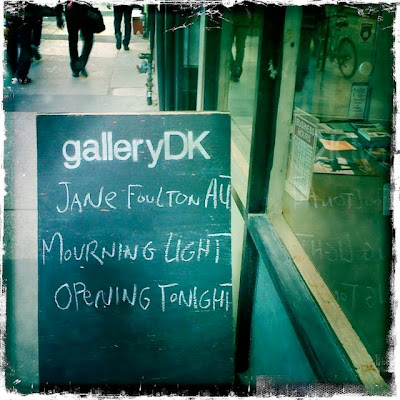 galleryDK
JANE FOULTON ALT
MOURNING LIGHT
OPENING TONIGHT